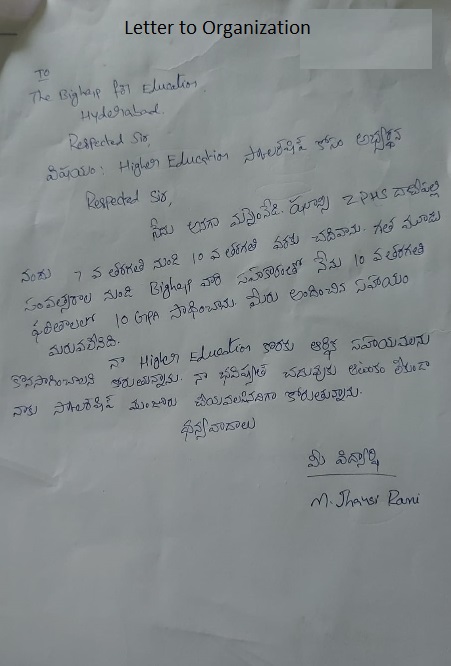 Letter to Organization
To
The Bighelp for Education,
Hyderabad.
Respected Sir,
విషయం: Higher Education స్కాలర్‌షిప్ కోసం అభ్యర్థన
Respected Sir,
నేను అనగా మన్నెంపేడి. ఝాన్సి ZPHS దాచేపల్లి
నందు 7 వ తరగతి నుండి 10 వ తరగతి వరకు చదివాను. గత మూడు
సంవత్సరాల నుండి Bighelp వారి సహకారంతో నేను 10 వ తరగతి
ఫలితాలలో 10 GPA సాధించాను. మీరు అందించిన సహాయం
మరువలేనిది.
నా Higher Education కొరకు ఆర్థిక సహాయమును
కొనసాగించాలని కోరుతున్నాను. నా భవిష్యత్ చదువుకు ఆటంకం లేకుండా
నాకు స్కాలర్‌షిప్ మంజూరు చేయవలసినదిగా కోరుతున్నాను.
ధన్యవాదాలు
మీ విద్యార్థి
M. Jhansi Rani